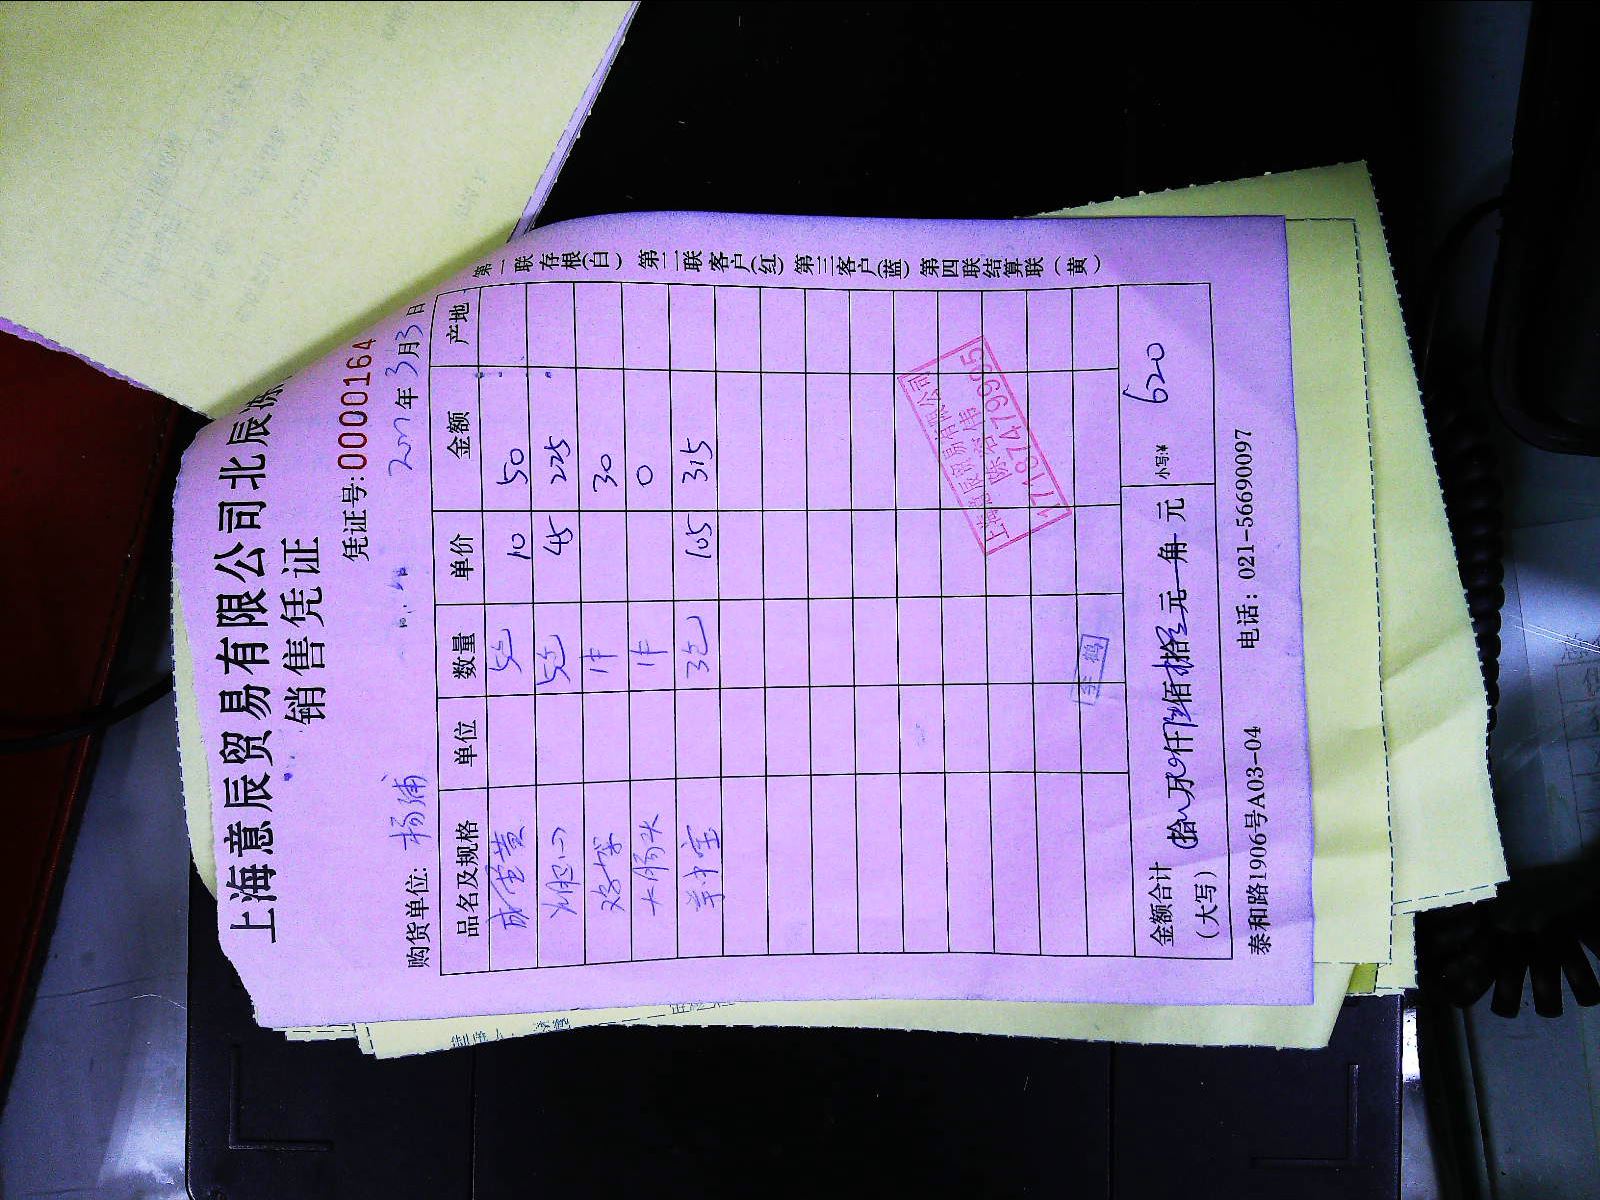 上海意辰贸易有限公司北辰冻
销售凭证
凭证号:0000164
购货单位: 杨浦 2017年3月3日
品名及规格 单位 数量 单价 金额 产地
咸蛋黄 5包 10 50
5包 45 225
鸡架 1件 30
大肠头 1件 0
掌中宝 3包 105 315
上海意辰贸易有限公司
陈名伟
17187479995
金额合计 (大写) 拾 万 仟陆佰拾元 角 元 小写:¥ 620
泰和路1906号A03-04 电话: 021-56690097
第一联存根(白) 第二联客户(红) 第三客户(蓝) 第四联结算联(黄)